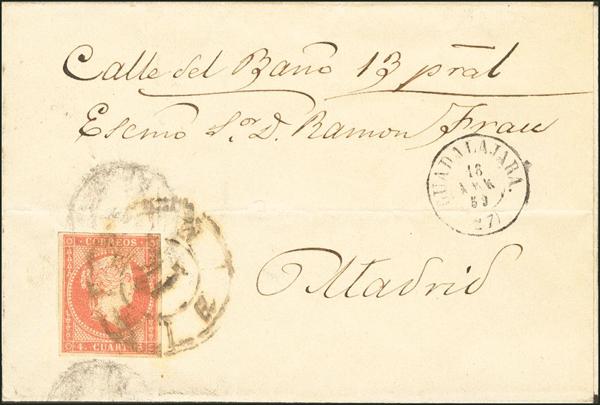 Calle del Baño 13 pral
Escmo Sor D. Ramon Frau
GUADALAJARA.
18
59
(27)
Madrid
CORREOS
4 CUARTOS